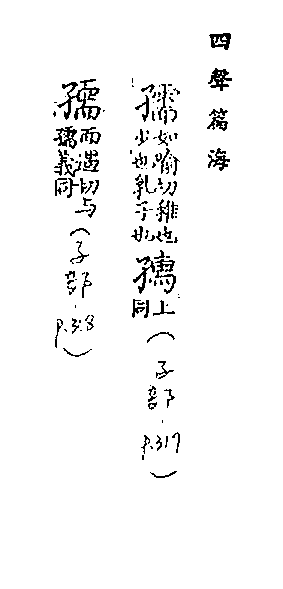 四聲篇海
孺如喻切稚也少也乳子也上同(子部·p.317)
而遇切与孺義同(子部·p.318)